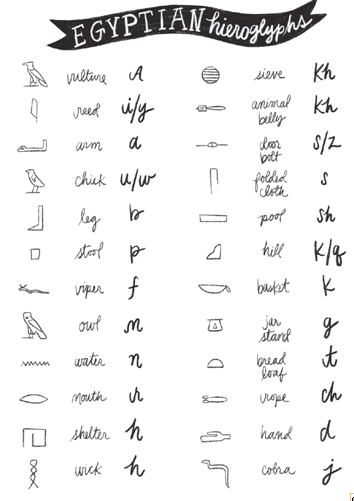 EGYPTIAN hieroglyphs
vulture A
reed i/y
arm a
chick u/w
leg b
stool p
viper f
owl m
water n
mouth r
shelter h
wick h
sieve Kh
animal
belly Kh
door
bolt s/z
folded
cloth s
pool sh
hill K/q
basket K
jar
stand g
bread
loaf t
rope ch
hand d
cobra j